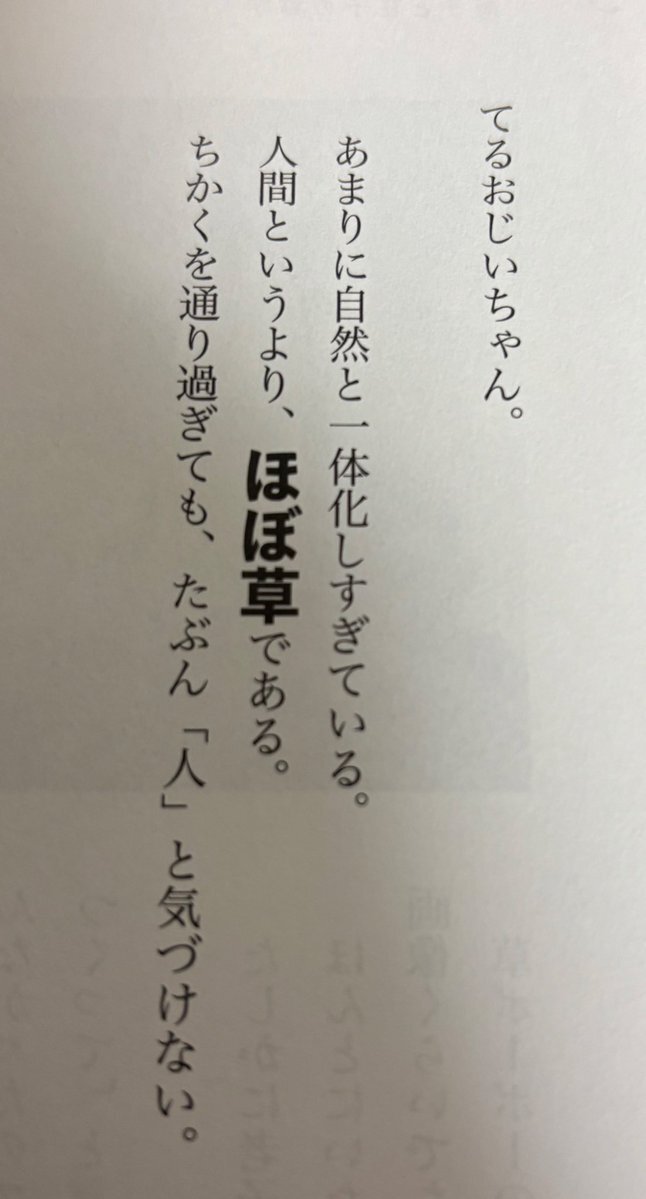 てるおじいちゃん。
あまりに自然と一体化しすぎている。
人間というより、ほぼ草である。
ちかくを通り過ぎても、たぶん「人」と気づけない。